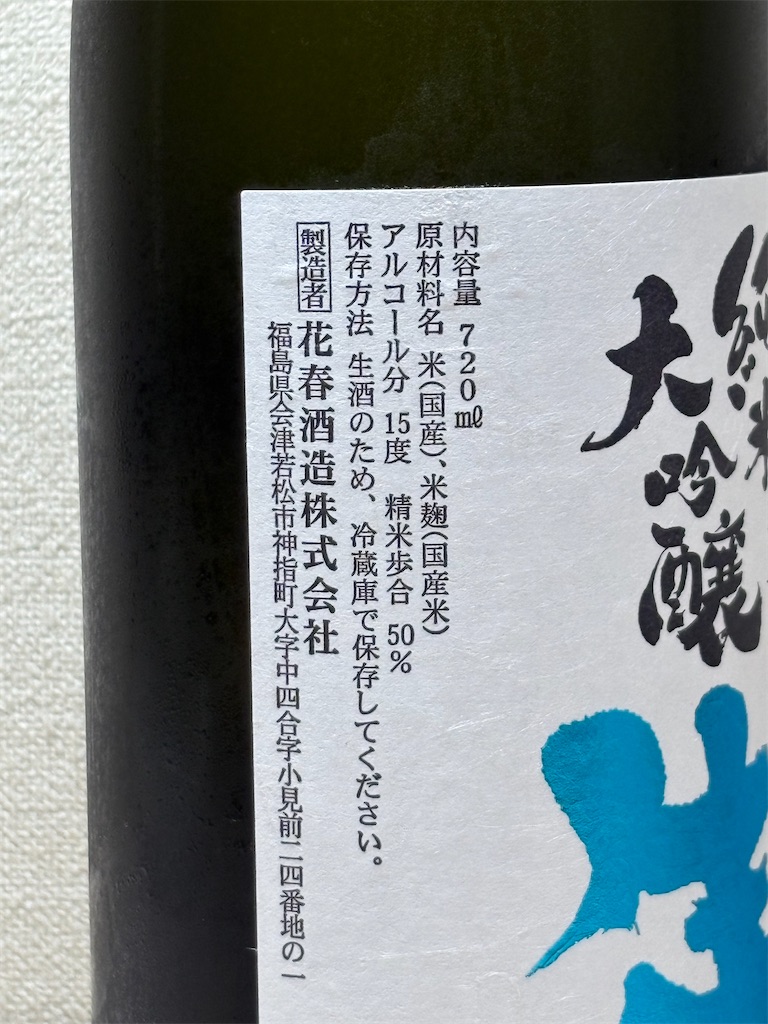 純米
大吟醸
生
内容量 720㎖
原材料名 米(国産)、米麹(国産米)
アルコール分 15度 精米歩合 50%
保存方法 生酒のため、冷蔵庫で保存してください。
製造者 花春酒造株式会社
福島県会津若松市神指町大字中四合字小見前二四番地の一